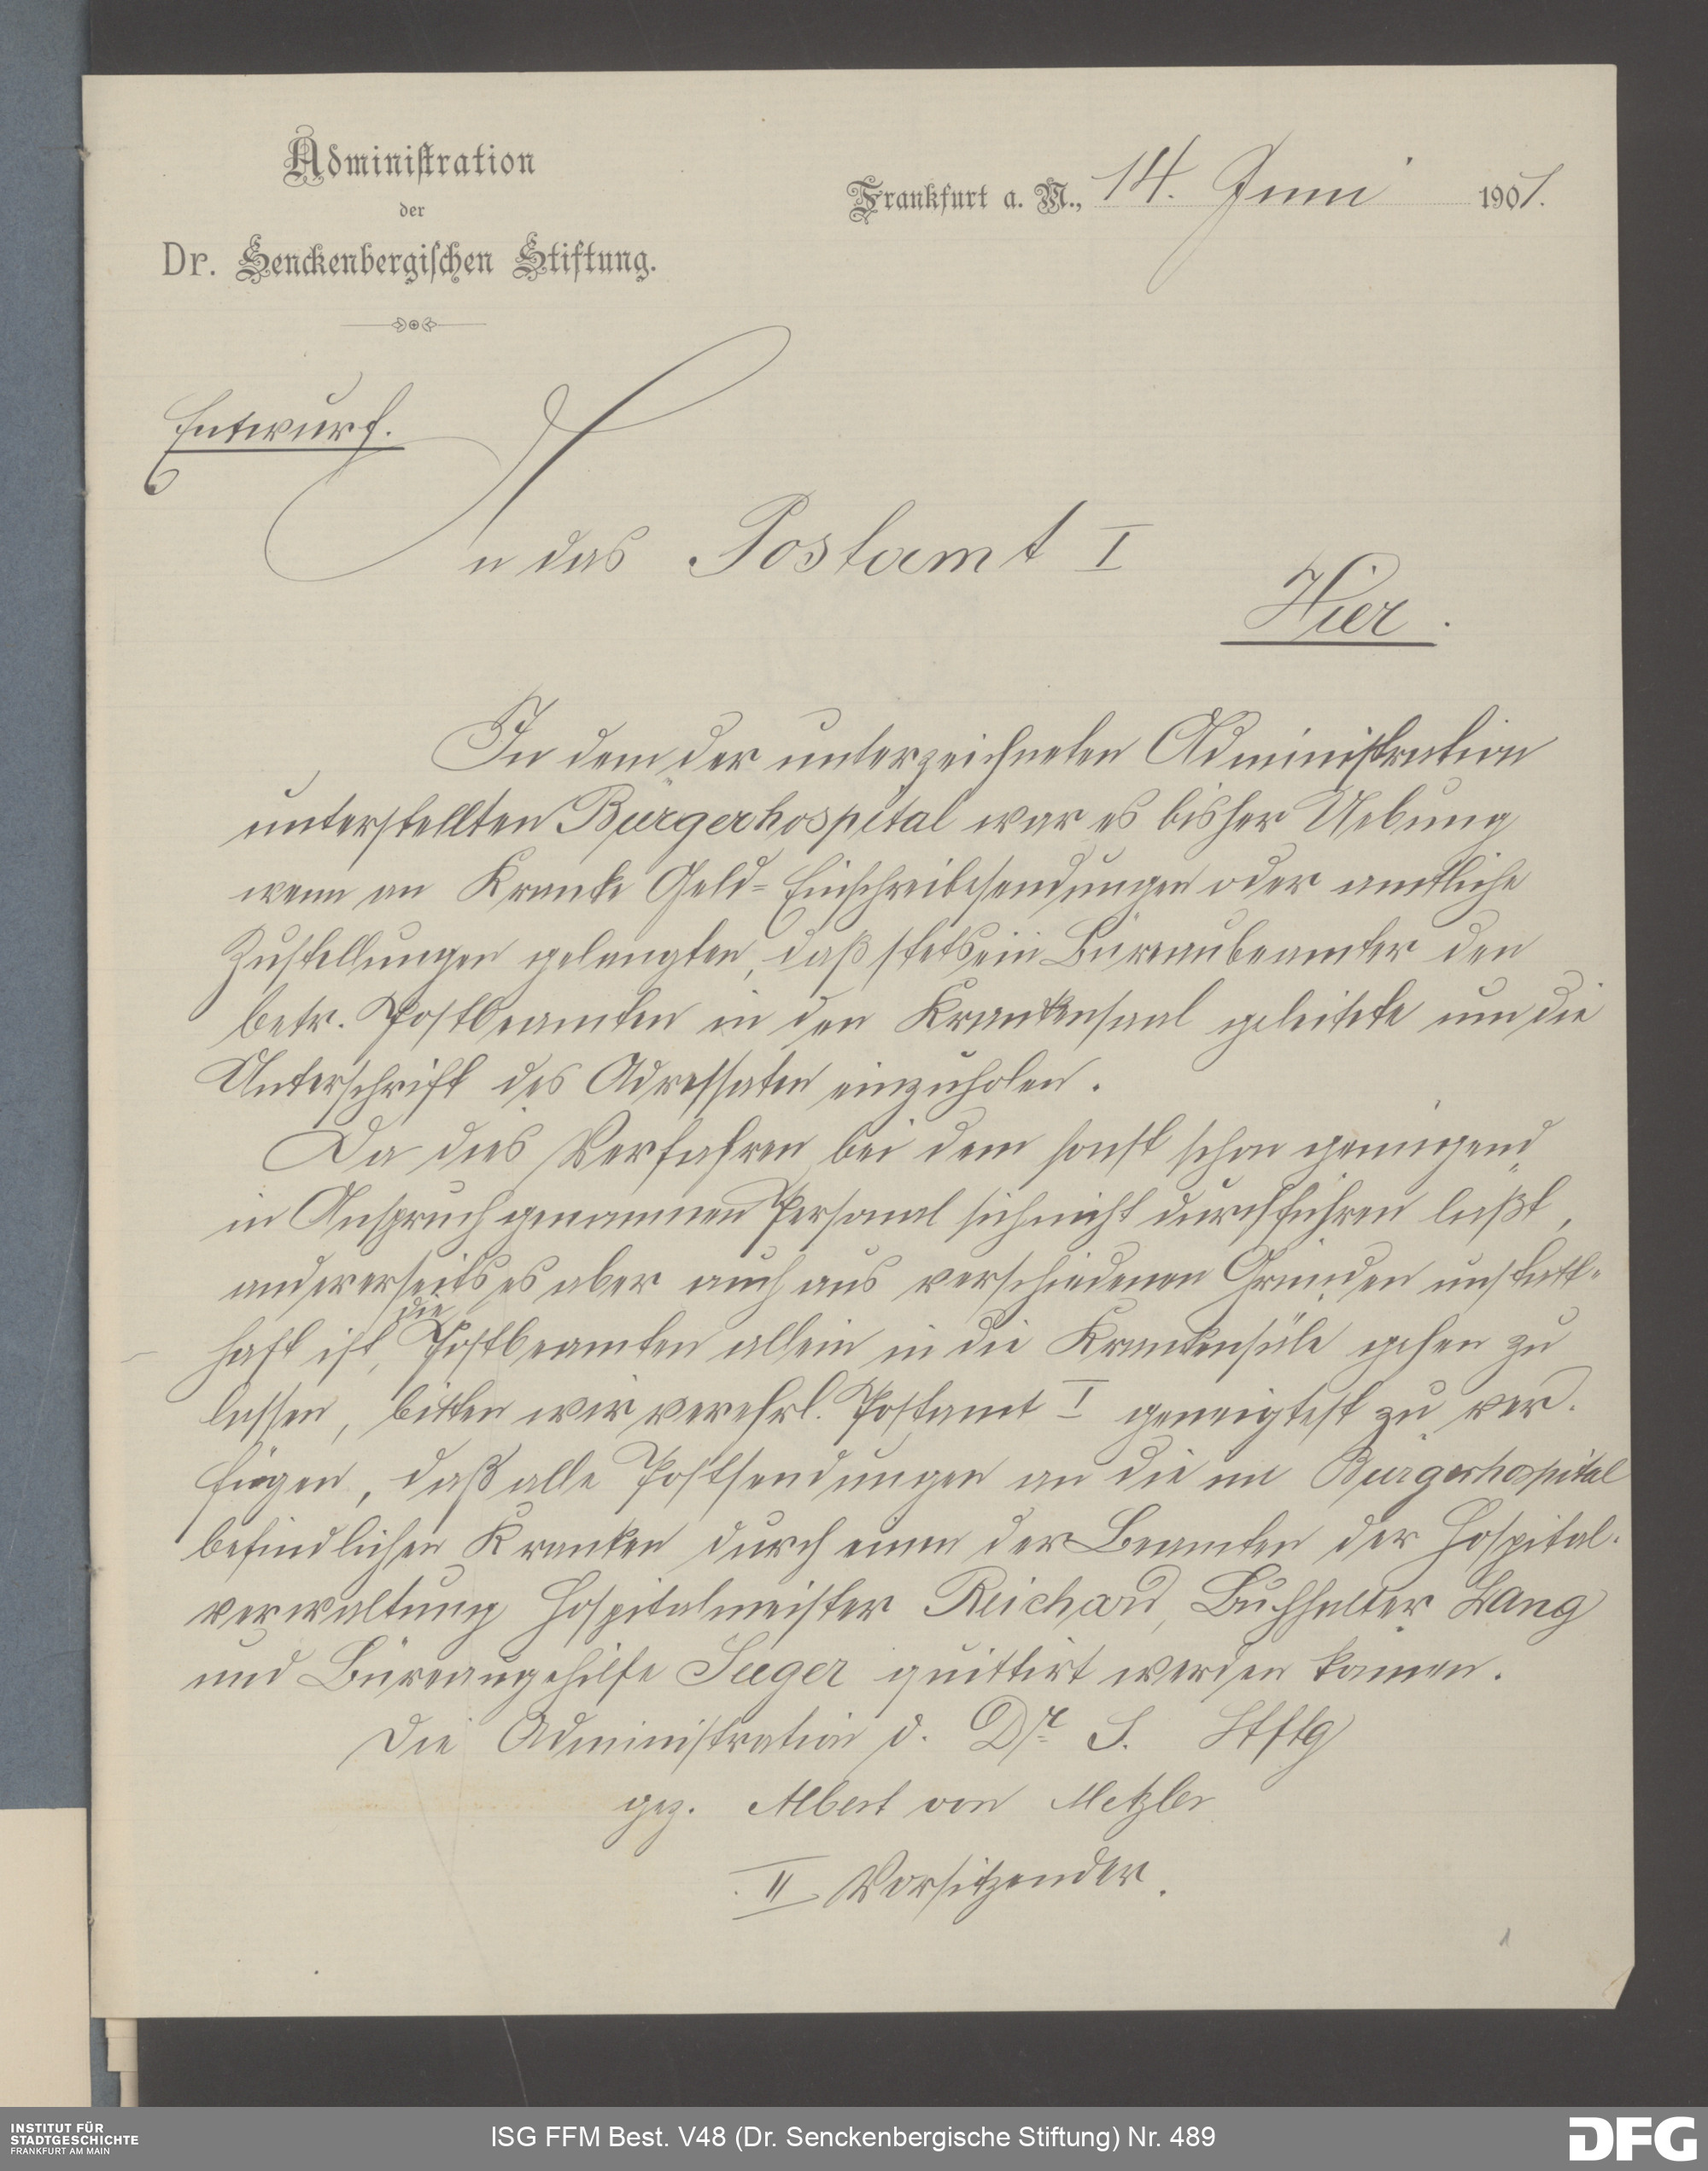 Administration
der
Dr. Senckenbergischen Stiftung.
Frankfurt a. M., 14. Juni 1901.
Entwurf.
An das Postamt I
Hier.
In dem der unterzeichneten Administration
unterstellten Bürgerhospital war es bisher Uebung
wenn an Kranke Geld= Einschreibesendungen oder amtliche
Zustellungen gelangten, daß stets ein Büreaubeamter den
betr. Postbeamten in den Krankensaal geleitete um die
Unterschrift des Adressaten einzuholen.
Da dies Verfahren bei dem sonst schon genügend
in Anspruch genommen Personal sich nicht durchführen läßt,
andererseits es aber auch aus verschiedenen Gründen unstatt-
haft ist, die Postbeamten allein in die Krankensäle gehen zu
lassen, bitten wir verehrl. Postamt I geneigtest zu ver-
fügen, daß alle Postsendungen an die im Bürgerhospital
befindlichen Kranken durch einen der Beamten der Hospital-
verwaltung Hospitalmeister Reichard, Buchhalter Lang
und Büreaugehilfe Seeger quittirt werden können.
Die Administration d. Dr. S. Stftg
gez. Albert von Metzler
II Vorsitzender.
1
INSTITUT FÜR
STADTGESCHICHTE
FRANKFURT AM MAIN
ISG FFM Best. V48 (Dr. Senckenbergische Stiftung) Nr. 489
DFG